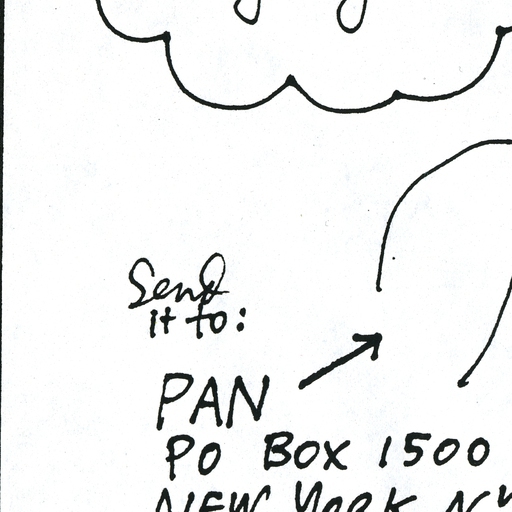 Send
it to:
PAN
PO BOX 1500
NEW YORK NY